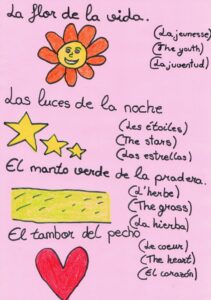 La flor de la vida.
(La jeunesse)
(The youth)
(La juventud)
Las luces de la noche
(Les étoiles)
(The stars)
(Las estrellas)
El manto verde de la pradera.
(L'herbe)
(The grass)
(La hierba)
El tambor del pecho
(Le coeur)
(The heart)
(El corazón)